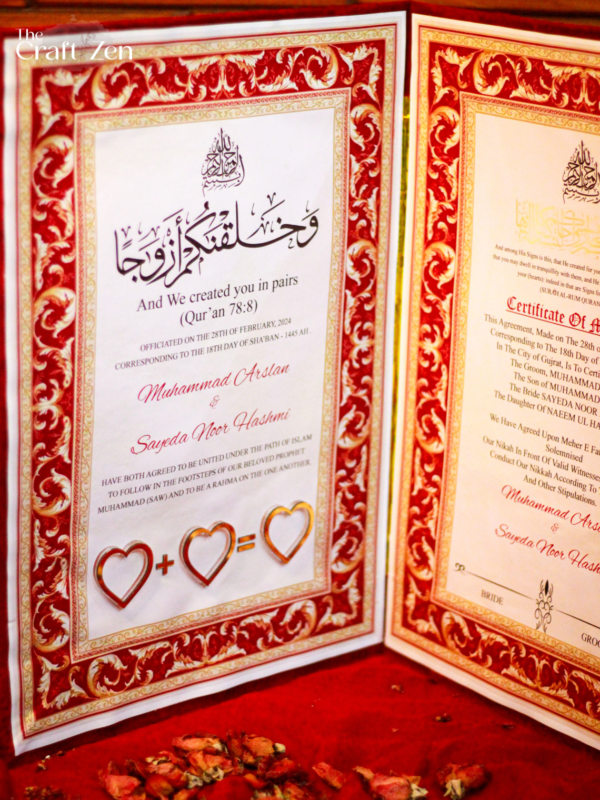 The
Craft Zen
وَخَلَقْنَٰكُمْ أَزْوَٰجًا
And We created you in pairs
(Qur'an 78:8)
OFFICIATED ON THE 28TH OF FEBRUARY, 2024
CORRESPONDING TO THE 18TH DAY OF SHA'BAN - 1445 AH
Muhammad Arslan
&
Sayeda Noor Hashmi
HAVE BOTH AGREED TO BE UNITED UNDER THE PATH OF ISLAM
TO FOLLOW IN THE FOOTSTEPS OF OUR BELOVED PROPHET
MUHAMMAD (SAW) AND TO BE A RAHMA ON THE ONE ANOTHER.
+ =
And among His Signs is this, that He created for
that you may dwell in tranquility with them, and He
your (hearts): indeed in that are Signs
(SURAH AL-RUM QURAN
Certificate Of
This Agreement, Made on The 28th
Corresponding to The 18th Day of
In The City of Gujrat, Is To
The Groom, MUHAMMAD
The Son of MUHAMMAD
The Bride SAYEDA NOOR
The Daughter Of NAEEM UL
We Have Agreed Upon Meher E
Solemnised
Our Nikah In Front Of Valid
Conduct Our Nikkah According To
And Other Stipulations.
Muhammad
&
Sayeda Noor
BRIDE